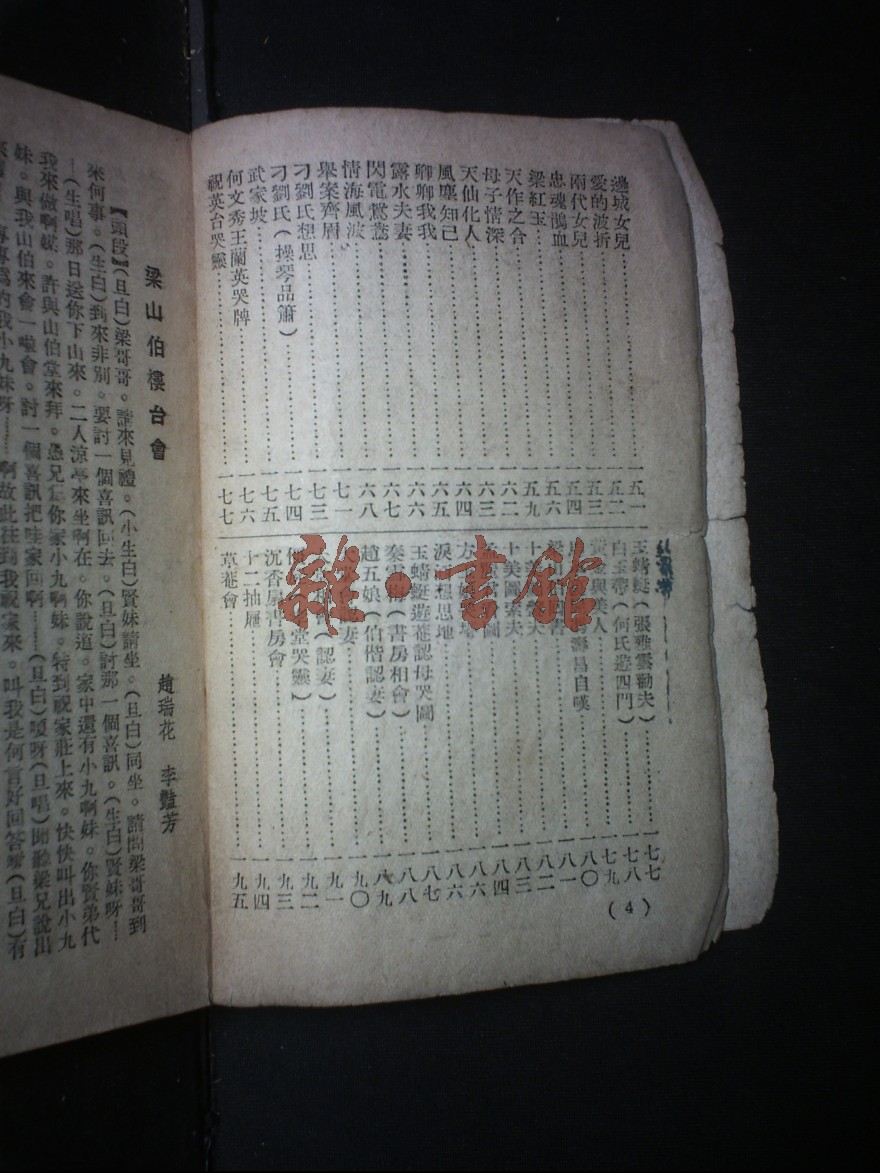 邊城女兒…………五一
愛的波折…………五二
兩代女兒…………五三
忠魂鵑血…………五四
梁紅玉…………五六
天作之合…………五九
母子情深…………六二
天仙化人…………六三
風塵知己…………六四
卿卿我我…………六五
露水夫妻…………六六
閃電鴛鴦…………六七
情海風波…………六八
舉案齊眉…………七一
刁劉氏想思…………七三
刁劉氏(操琴品簫)…………七四
武家坡…………七五
何文秀王蘭英哭牌…………七六
祝英台哭靈…………七七
玉蜻蜓(張雅雲勸夫)…………七七
白玉帶(何氏遊四門)…………七八
黃金與美人…………七九
壽昌自嘆…………八〇
八一
八二
十美圖索夫…………八三
圖…………八四
八六
淚洒想思地…………八六
玉蜻蜓遊菴認母哭圖…………八七
秦雪梅(書房相會)…………八八
趙五娘(伯楷認妻)…………八九
妻…………九〇
(認妻)…………九一
堂哭靈)…………九二
沉香扇書房會…………九三
十二抽屜…………九四
草菴會…………九五
(4)
雜·書館
梁山伯樓台會
趙瑞花 李豔芳
【頭段】(旦白)梁哥哥。請來見禮。(小生白)賢妹請坐。(旦白)同坐。請問梁哥哥到
來何事。(生白)到來非別。要討一個喜訊回去。(旦白)討那一個喜訊。(生白)賢妹呀……
……(生唱)那日送你下山來。二人涼亭來坐啊在。你說道。家中還有小九啊妹。你賢弟代
我來做啊媒。許與山伯堂來拜。愚兄你家小九啊妹。特到祝家莊上來。快快叫出小九
妹。與我山伯來會一啦會。討一個喜訊把哇家回啊……(旦白)嗄呀(旦唱)聞聽梁兄說出
我小九妹呀……啊故此在到我祝家來。叫我是何言好回答(旦白)有